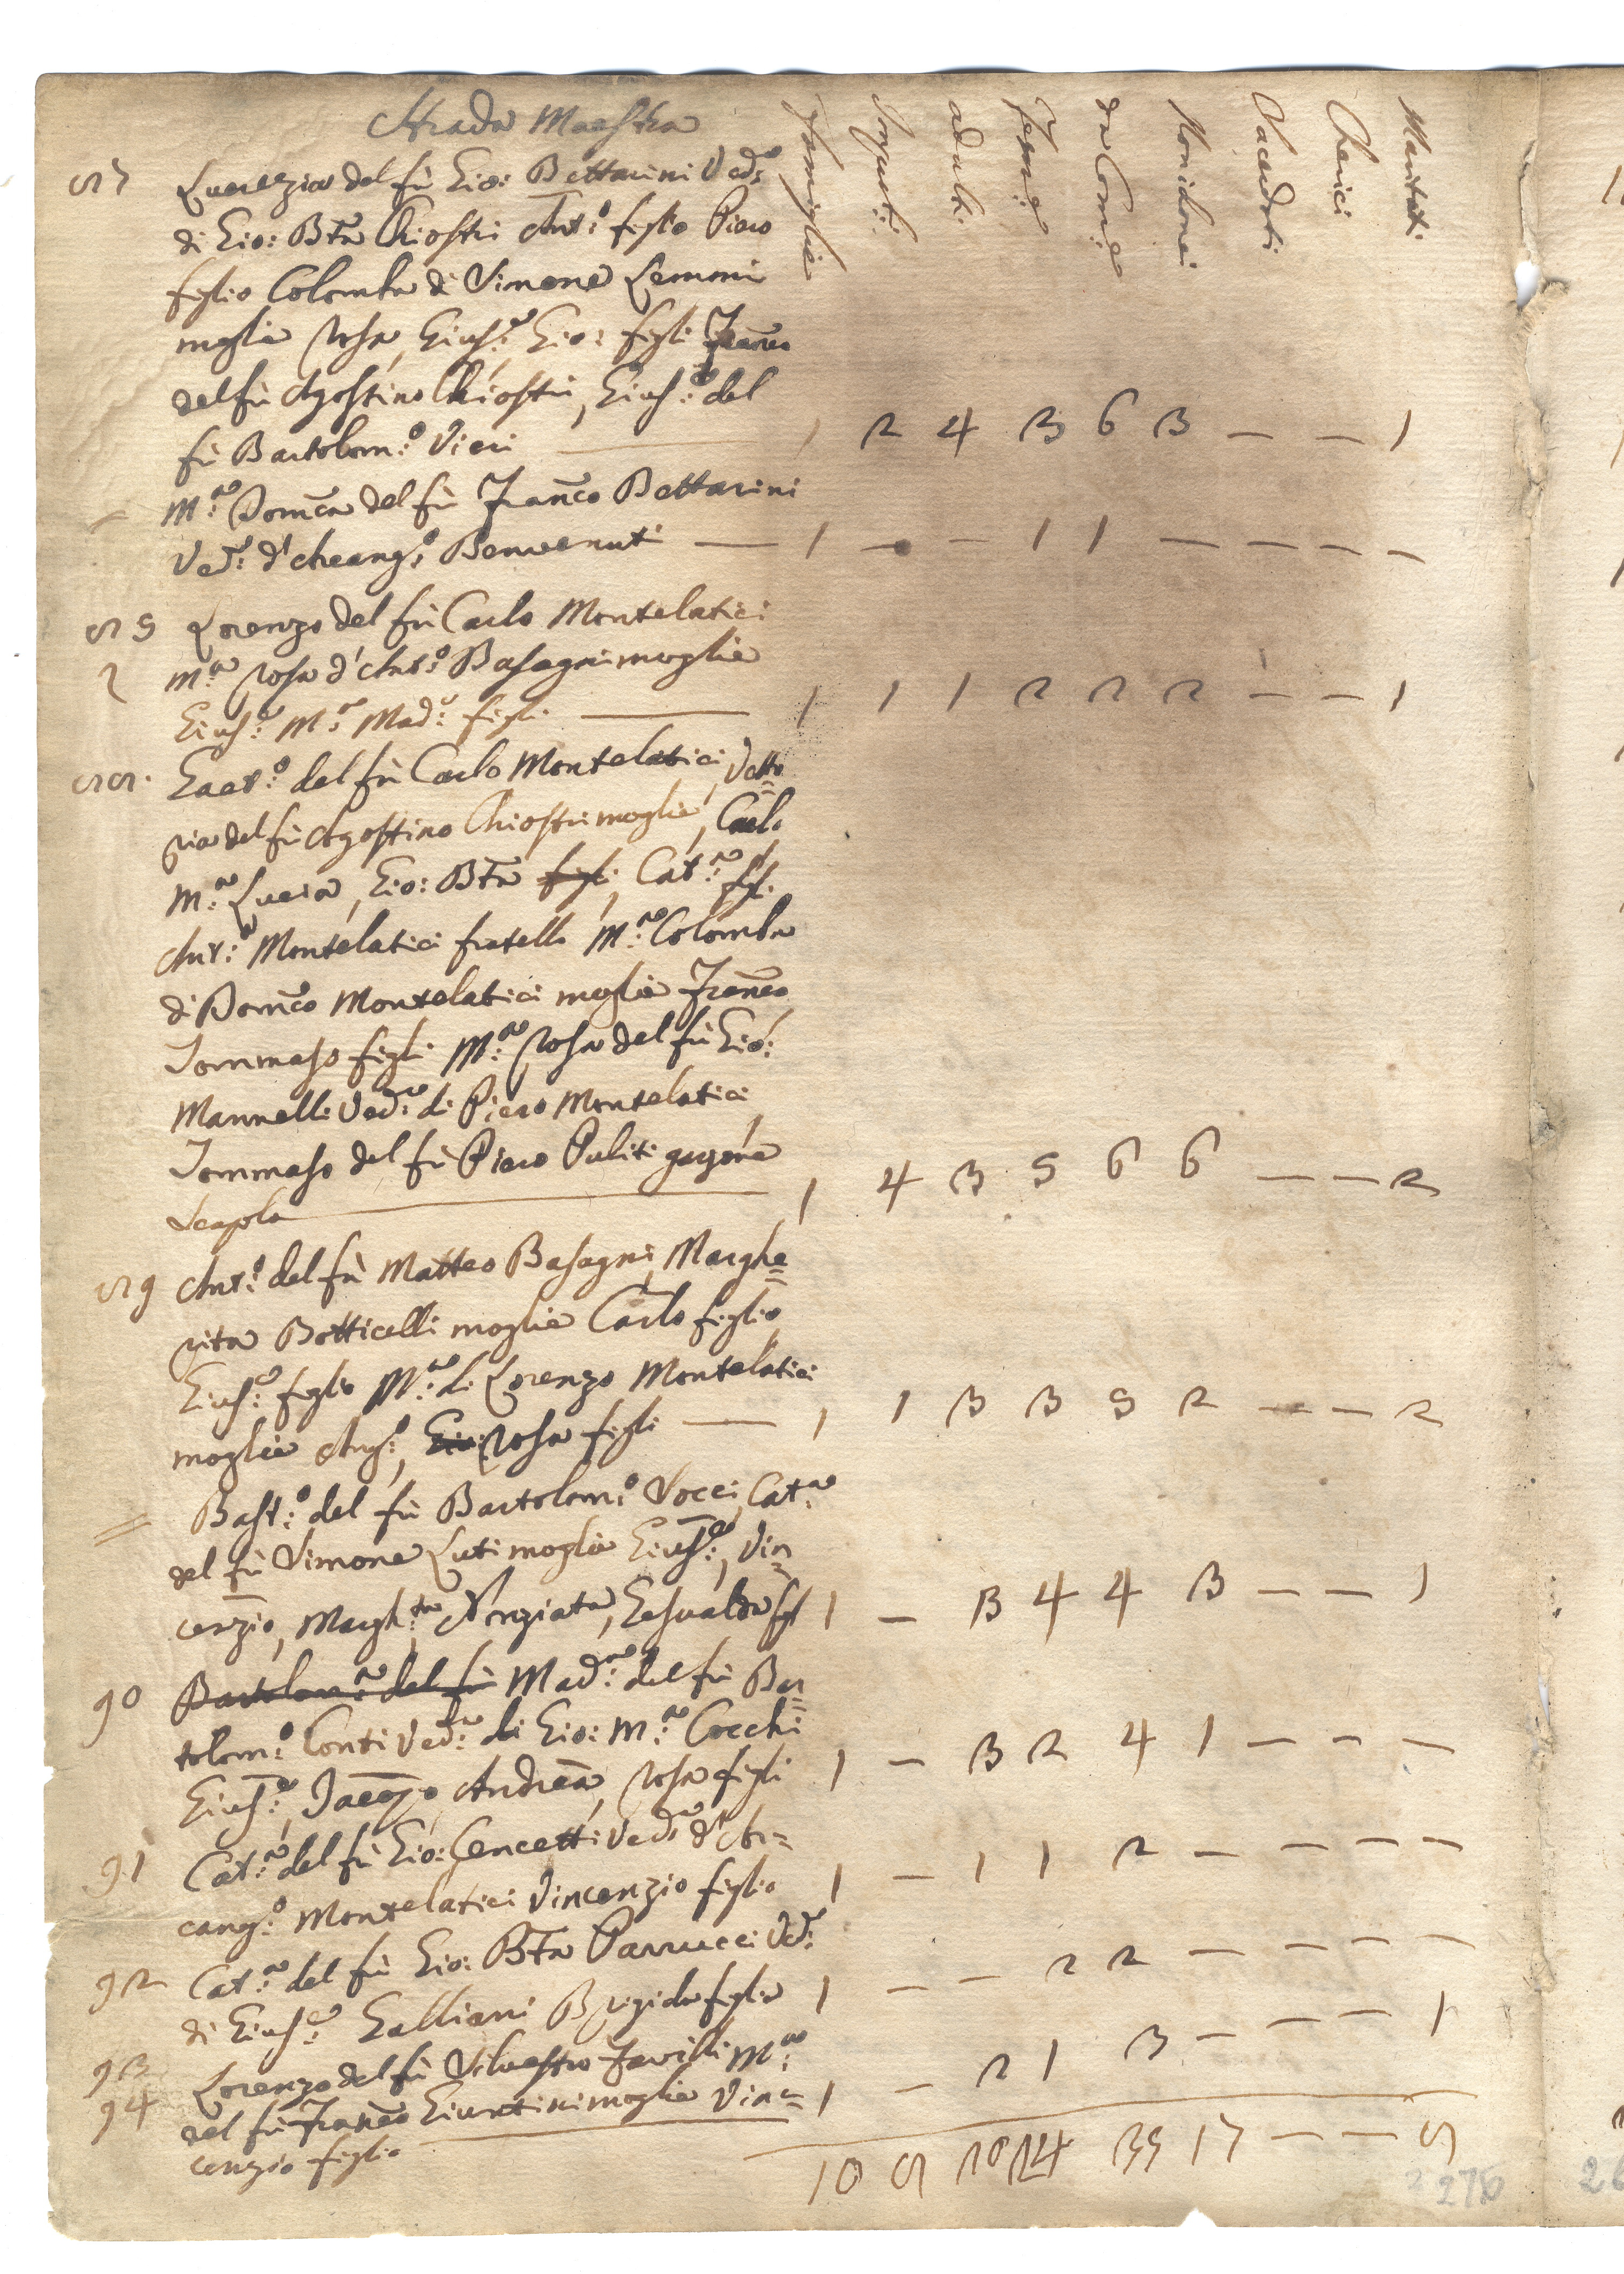 Strada Maestra
Famiglie Impub:i adulti Fem:e da Com:e Non idonei Sacerdoti Cherici Maritati
87 Lucrezia del fù Gio: Bettarini Ved:a
di Gio: Bta Chiostri Ant:o figlio Piero
figlio Colomba di Simone Lemmi
moglie Rosa, Gius:e Gio: figli Franco
del fù Agostino Chiostri, Gius:e del
fù Bartolom:o Vieri — 1 2 4 3 6 3 — — 1
= M:a Domca del fù Franco Bettarini
Ved:a d'Archang:o Benvenuti — 1 — — 1 1 — — — —
88 Lorenzo del fù Carlo Montelatici
M:a Rosa d'Ant:o Basagni moglie
Gius:e M:a Mad:a figli — 1 1 1 2 2 2 — — 1
88. Gaet:o del fù Carlo Montelatici, Vetto=
ria del fù Agostino Chiostri moglie, Carlo
M:a Lucia, Gio: Bta figli, Cat:a figli
Ant:o Montelatici fratello M:a Colomba
di Domco Montelatici moglie Franco
Tommaso figli M:a Rosa del fù Gio:
Mannelli Ved:a di Piero Montelatici
Tommaso del fù Piero Puliti garzone
scapolo — 1 4 3 5 6 6 — — 2
89 Ant:o del fù Matteo Basagni, Marghe=
rita Botticelli moglie Carlo figlio
Gius:e figlio M:a di Lorenzo Montelatici
moglie Ang:o, Gio: Rosa figli — 1 1 3 3 5 2 — — 2
= Bast:o del fù Bartolom:o Socci Cat:a
del fù Simone Luti moglie Gius:e, Vin=
cenzio, Margh:ta Nunziata, Gesualda figli 1 — 3 4 4 3 — — 1
90 Bartolom:a del fù Mad:a del fù Bar=
tolom:o Conti Ved:a di Gio: M:a Cocchi
Gius:e, Jacopo Andrea, Rosa figli 1 — 3 2 4 1 — — —
91 Cat:a del fù Gio: Cencetti Ved:a d'Ar=
cang:o Montelatici Vincenzio figlio 1 — 1 1 2 — — — —
92 Cat:a del fù Gio: Bta Parrucci Ved:a
di Gius:e Galliani Brigida figlia 1 — — 2 2 — — — —
93 Lorenzo del fù Silvestro Favilli M:a
94 del fù Franco Giuntini moglie Vin=
cenzio figlio — 1 — 2 1 3 — — — 1
10 8 20 24 35 17 — — 8